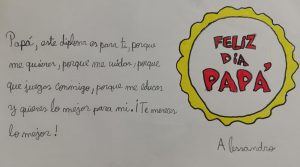 Papá, este diploma es para ti, porque
me quieres, porque me cuidas, porque
que juegas conmigo, porque me educas
y quieres lo mejor para mi. ¡Te mereces
lo mejor!
FELIZ
DÍA
PAPÁ
Alessandro